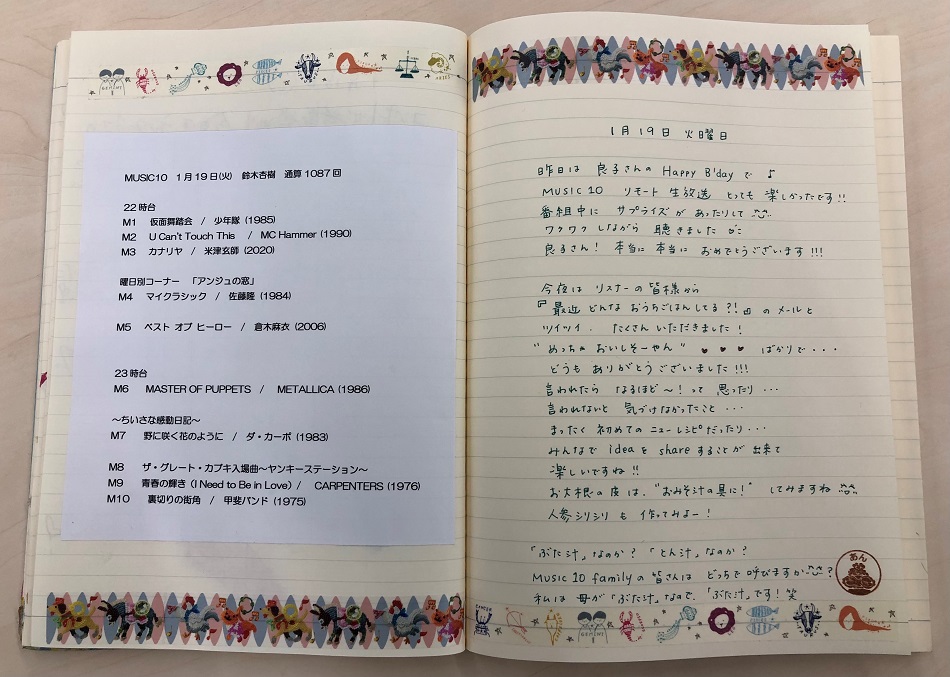 GEMINI
MUSIC10 1月19日(火) 鈴木杏樹 通算1087回
22時台
M1 仮面舞踏会 / 少年隊 (1985)
M2 U Can't Touch This / MC Hammer (1990)
M3 カナリヤ / 米津玄師 (2020)
曜日別コーナー 「アンジュの窓」
M4 マイクラシック / 佐藤隆 (1984)
M5 ベスト オブ ヒーロー / 倉木麻衣 (2006)
23時台
M6 MASTER OF PUPPETS / METALLICA (1986)
～ちいさな感動日記～
M7 野に咲く花のように / ダ・カーポ (1983)
M8 ザ・グレート・カブキ入場曲～ヤンキーステーション～
M9 青春の輝き (I Need to Be in Love) / CARPENTERS (1976)
M10 裏切りの街角 / 甲斐バンド (1975)
1月19日 火曜日
昨日は 良子さんの Happy B'day で ♪
MUSIC 10 リモート 生放送 とっても 楽しかったです!!
番組中に サプライズが あったりして
ワクワク しながら 聴きました
良子さん! 本当に 本当に おめでとうございます!!!
今夜は リスナーの 皆様から
『最近 どんな おうちごはんしてる?!』 の メールと
ツイツイ. たくさん いただきました!
"めっちゃ おいしそーやん" ♥ ♥ ♥ ばかりで・・・
どうも ありがとう ございました!!!
言われたら なるほど～! って 思ったり・・・
言われないと 気づけなかったこと・・・
まったく 初めての ニューレシピだったり・・・
みんなで ideaを shareすることが 出来て
楽しいですね!!
お大根の皮は、"おみそ汁の具に!" してみますね
人参シリシリ も 作ってみよー!
「ぶた汁」なのか? 「とん汁」なのか?
MUSIC 10 familyの 皆さんは どっちで 呼びますか?
私は 母が「ぶた汁」なので、「ぶた汁」です! 笑
あん
CANCER
GEMINI